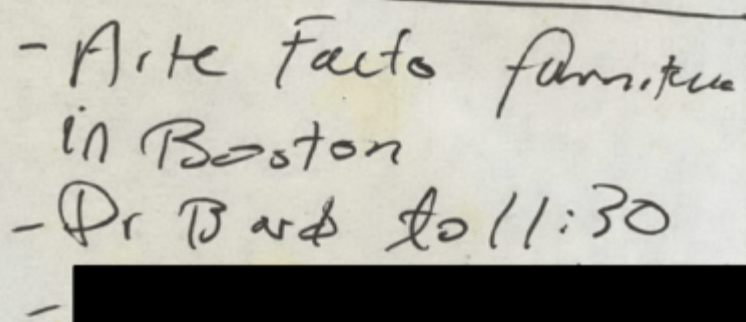 - Arte Facto furniture
in Boston
- Dr Bard to 11:30
-